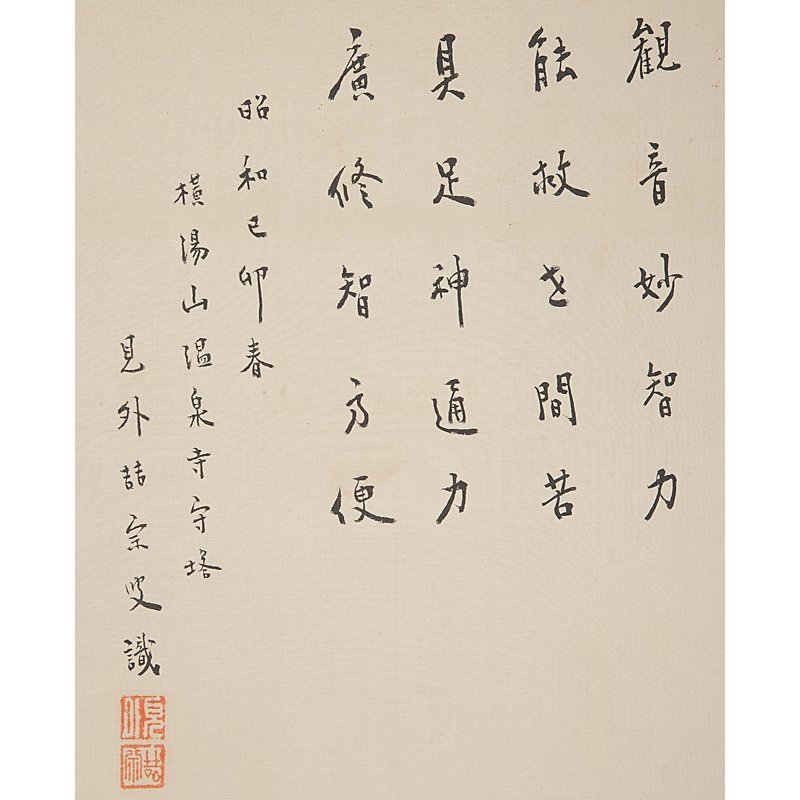 観音妙智力
能救世間苦
具足神通力
廣修智方便
昭和己卯春
横陽山温泉寺守塔
見外喆宗叟識